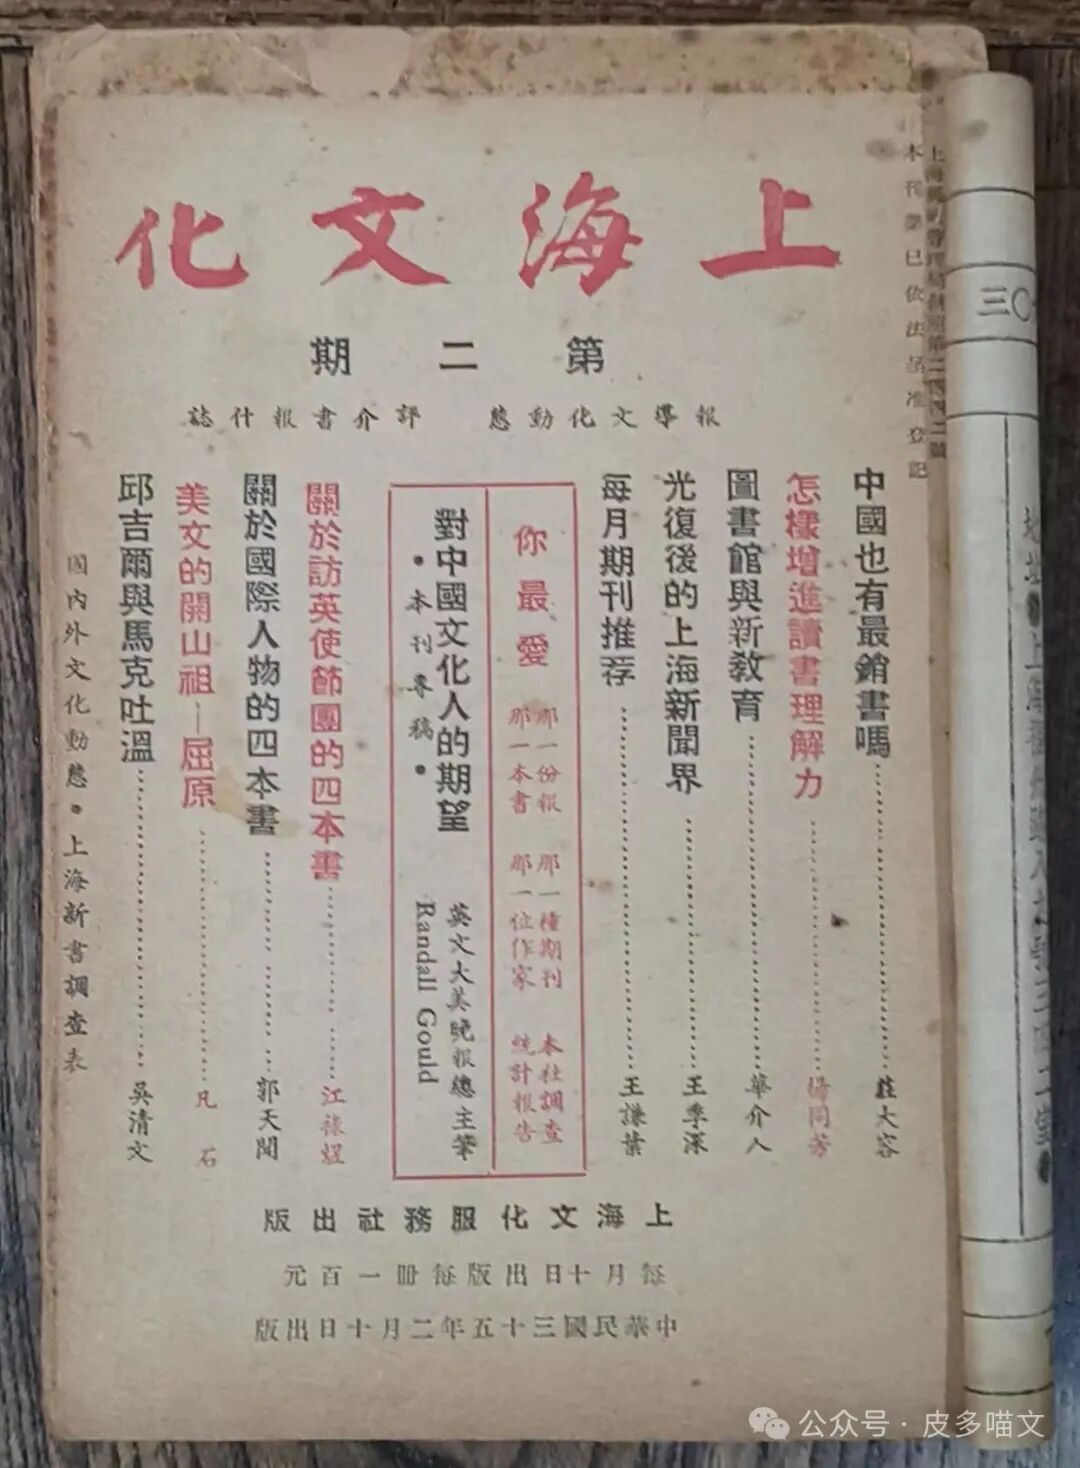 上海文化
第二期
報導文化動態　評介書報什誌
本刊業已依法呈准登記
中國也有最銷書嗎……莊大容
怎樣增進讀書理解力……楊同芳
圖書館與新教育……華介人
光復後的上海新聞界……王季深
每月期刊推荐……王謙葉
你最愛
那一份報　那一種期刊　本社調查
那一本書　那一位作家　統計報告
對中國文化人的期望　英文大美晚報總主筆
•本刊專稿•　Randall Gould
關於訪英使節團的四本書……江祿煜
關於國際人物的四本書……郭天聞
美文的開山祖—屈原……凡石
邱吉爾與馬克吐溫……吳清文
國內外文化動態•上海新書調查表
上海文化服務社出版
每月十日出版每冊一百元
中華民國三十五年二月十日出版
三〇
公众号·皮多喵文